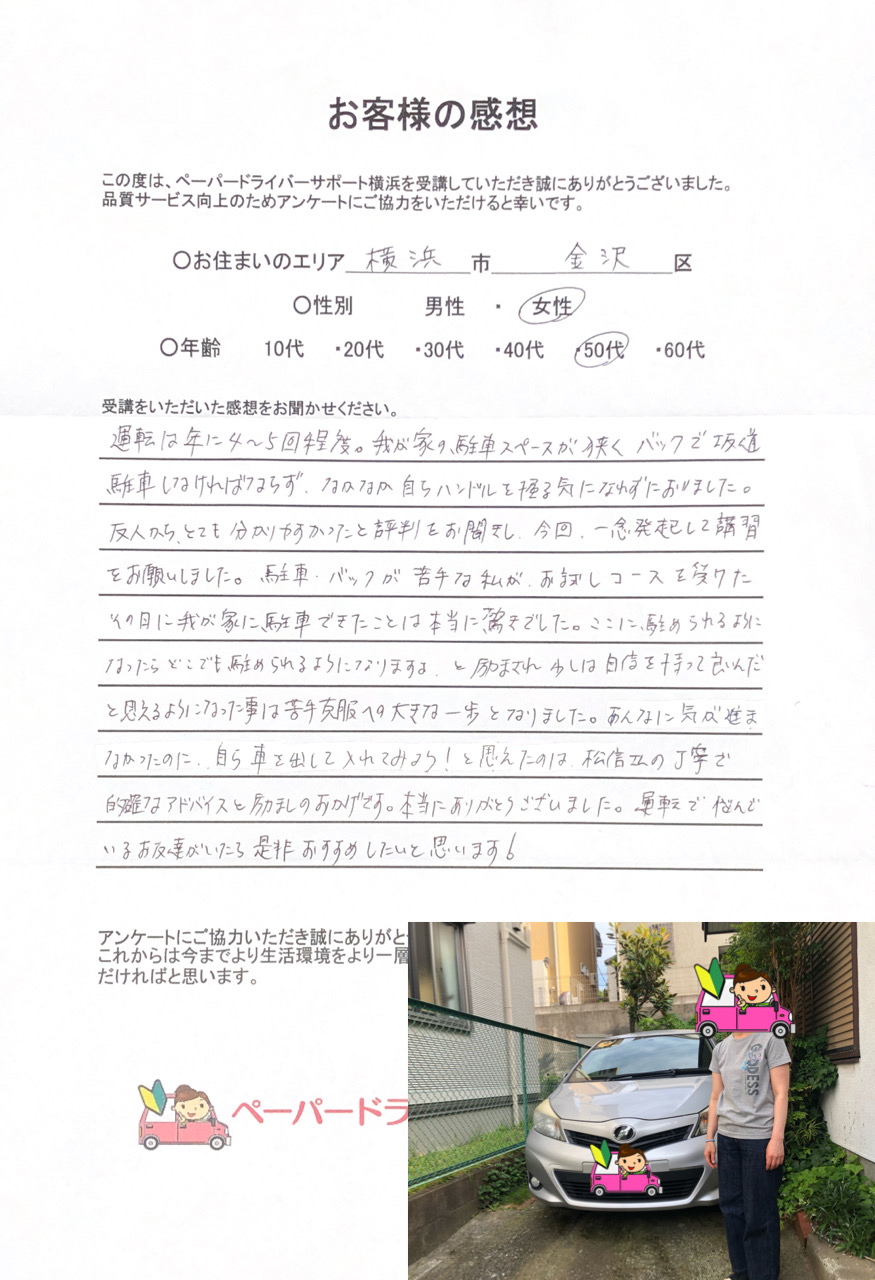 お客様の感想
この度は、ペーパードライバーサポート横浜を受講していただき誠にありがとうございました。
品質サービス向上のためアンケートにご協力をいただけると幸いです。
〇お住まいのエリア 横浜 市 金沢 区
〇性別 男性 ・ 女性
〇年齢 10代 ・20代 ・30代 ・40代 ・50代 ・60代
受講をいただいた感想をお聞かせください。
運転は年に4〜5回程度。我が家の駐車スペースが狭く バックで坂道
駐車しなければならず、なかなか自らハンドルを握る気になれずにおりました。
友人から、とても分かりやすかったと評判をお聞きし、今回、一念発起して講習
をお願いしました。駐車・バックが苦手な私が、お試しコースを受けた
その日に我が家に駐車できたことは本当に驚きでした。ここに駐められるように
なったらどこでも駐められるようになりますよ、と励まされ 少しは自信を持って良いんだ
と思えるようになった事は苦手克服への大きな一歩となりました。あんなに気が進ま
なかったのに、自ら車を出して入れてみよう！と思えたのは、松信 の丁寧で
的確なアドバイスと励ましのおかげです。本当にありがとうございました。運転で悩んで
いるお友達がいたら是非おすすめしたいと思います！
アンケートにご協力いただき誠にありがと
これからは今までより生活環境をより一層
だければと思います。
ペーパードラ
GODDESS